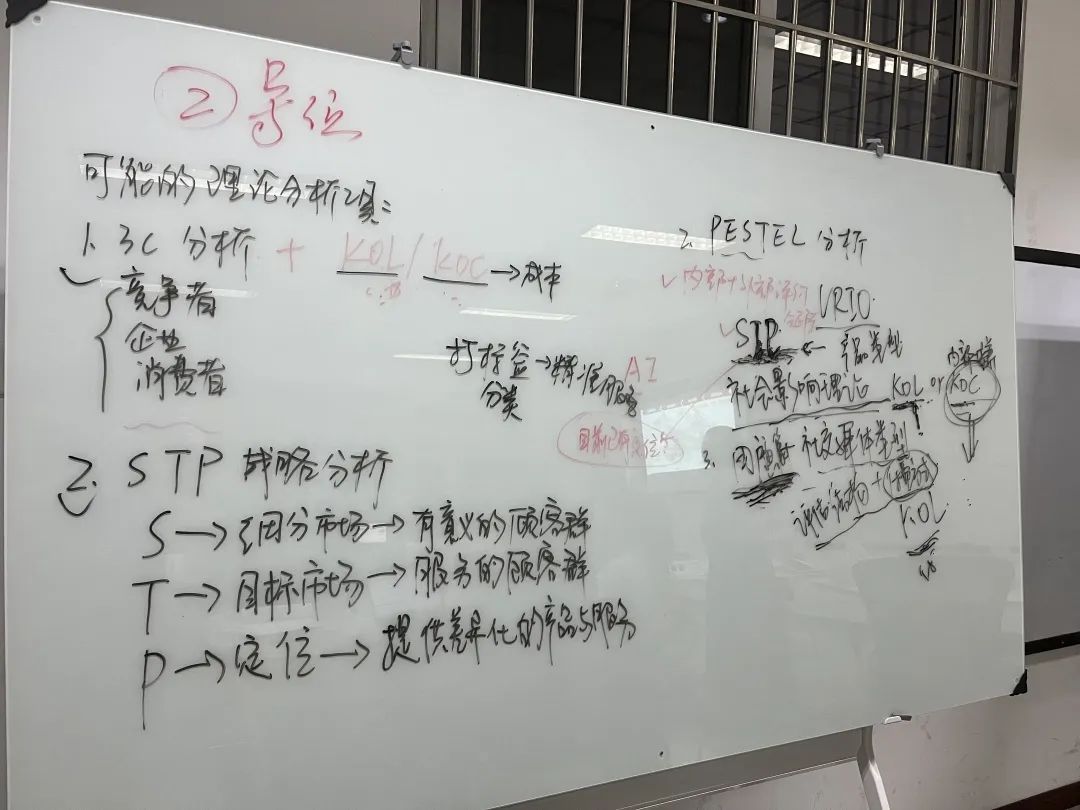 ② 号位
可能的理论分析工具:
1. 3C 分析 + KOL / KOC → 成本
竞争者
企业
消费者
打标签 → 精准服务 AI
分类
2. STP 战略分析
S → 细分市场 → 有意义的顾客群
T → 目标市场 → 服务的顾客群
P → 定位 → 提供差异化的产品与服务
2. PESTEL 分析
内部+外部
VRIO
STP ←
社会影响理论 KOL or KOC
3.
KOL